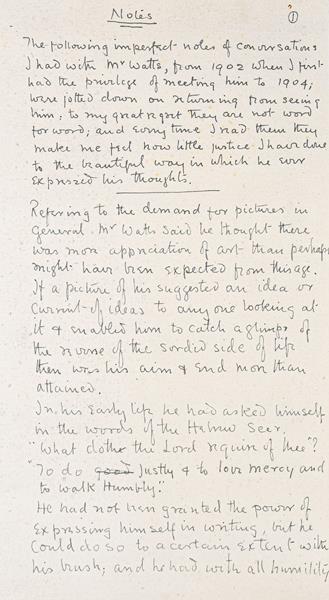 Notes
①
The following imperfect notes of conversations
I had with Mr Watts, from 1902 when I first
had the privilege of meeting him to 1904,
were jotted down on returning from seeing
him; to my great regret they are not word
for word; and every time I read them they
make me feel how little justice I have done
to the beautiful way in which he ever
expressed his thoughts.
Referring to the demand for pictures in
general Mr Watts said he thought there
was more appreciation of art than perhaps
might have been expected from this age.
If a picture of his suggested an idea or
current of ideas to any one looking at
it & enabled him to catch a glimpse of
the reverse of the sordid side of life
then was his aim & end more than
attained.
In his early life he had asked himself
in the words of the Hebrew Seer,
"What doth the Lord require of thee"?
"To do good justly & to love mercy and
to walk Humbly."
He had not been granted the power of
expressing himself in writing, but he
could do so to a certain extent with
his brush; and he had with all humility